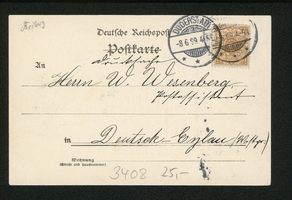 Deutsche Reichspost
Postkarte
Drucksache
An
Herrn W. Wesenberg
Postassistent
in Deutsch-Eylau (Westpr.)
Wohnung
(Straße und Hausnummer)
DUDERSTADT
-8 6 99 4-
3408 25,-